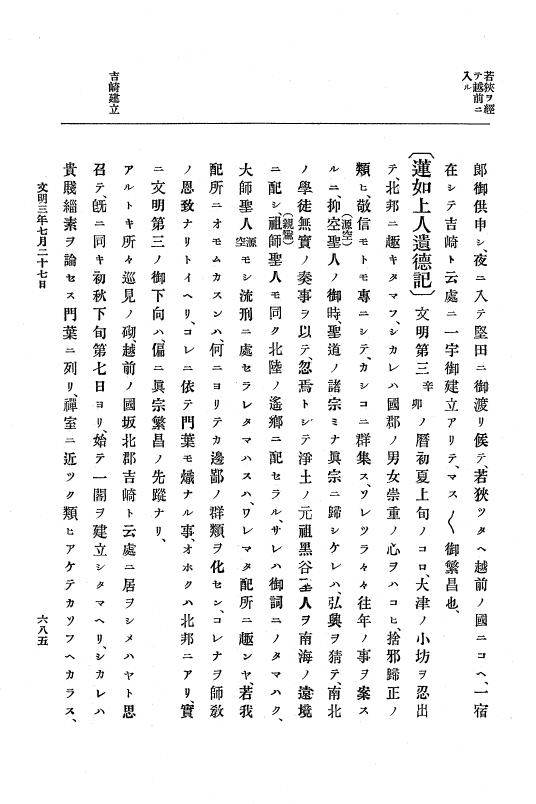 若狹ヲ經
テ越前ニ
入ル
吉崎建立
郎御供申シ、夜ニ入テ堅田ニ御渡リ候テ若狹ツタヘ越前ノ國ニコヘ、一宿
在シテ吉崎ト云處ニ一宇御建立アリテ、マス〱御繁昌也、
〔蓮如上人遺德記〕文明第三辛卯ノ曆初夏上旬ノコロ、大津ノ小坊ヲ忍出
テ、北邦ニ趣キタマフ、シカレハ國郡ノ男女崇重ノ心ヲハコヒ、捨邪歸正ノ
類ヒ、敬信モトモ專ニシテ、カシコニ群集ス、ソレツラ々々往年ノ事ヲ案ス
ルニ、抑空聖人ノ御時、聖道ノ諸宗ミナ眞宗ニ歸シケレハ、弘興ヲ猜テ、南北
(源空)
ノ學徒無實ノ奏事ヲ以テ、忽焉トシテ淨土ノ元祖黑谷聖人ヲ南海ノ遠境
ニ配シ、祖師聖人モ同ク北陸ノ遙鄕ニ配セラル、サレハ御詞ニノタマハク、
(親鸞)
大師聖人源空モシ流刑ニ處セラレタマハスハ、ワレマタ配所ニ趣ンヤ、若我
配所ニオモムカスンハ、何ニヨリテカ邊鄙ノ群類ヲ化セン、コレナヲ師敎
ノ恩致ナリトイヘリ、コレニ依テ門葉モ熾ナル事、オホクハ北邦ニアリ、實
ニ文明第三ノ御下向ハ、偏ニ眞宗繁昌ノ先蹤ナリ、
アルトキ所々巡見ノ砌、越前ノ國坂北郡吉崎ト云處ニ居ヲシメハヤト思
召テ、旣ニ同キ初秋下旬第七日ヨリ、始テ一閣ヲ建立シタマヘリ、シカレハ
貴賤緇素ヲ論セス門葉ニ列リ、禪室ニ近ツク類ヒアケテカソフヘカラス、
文明三年七月二十七日
六八五